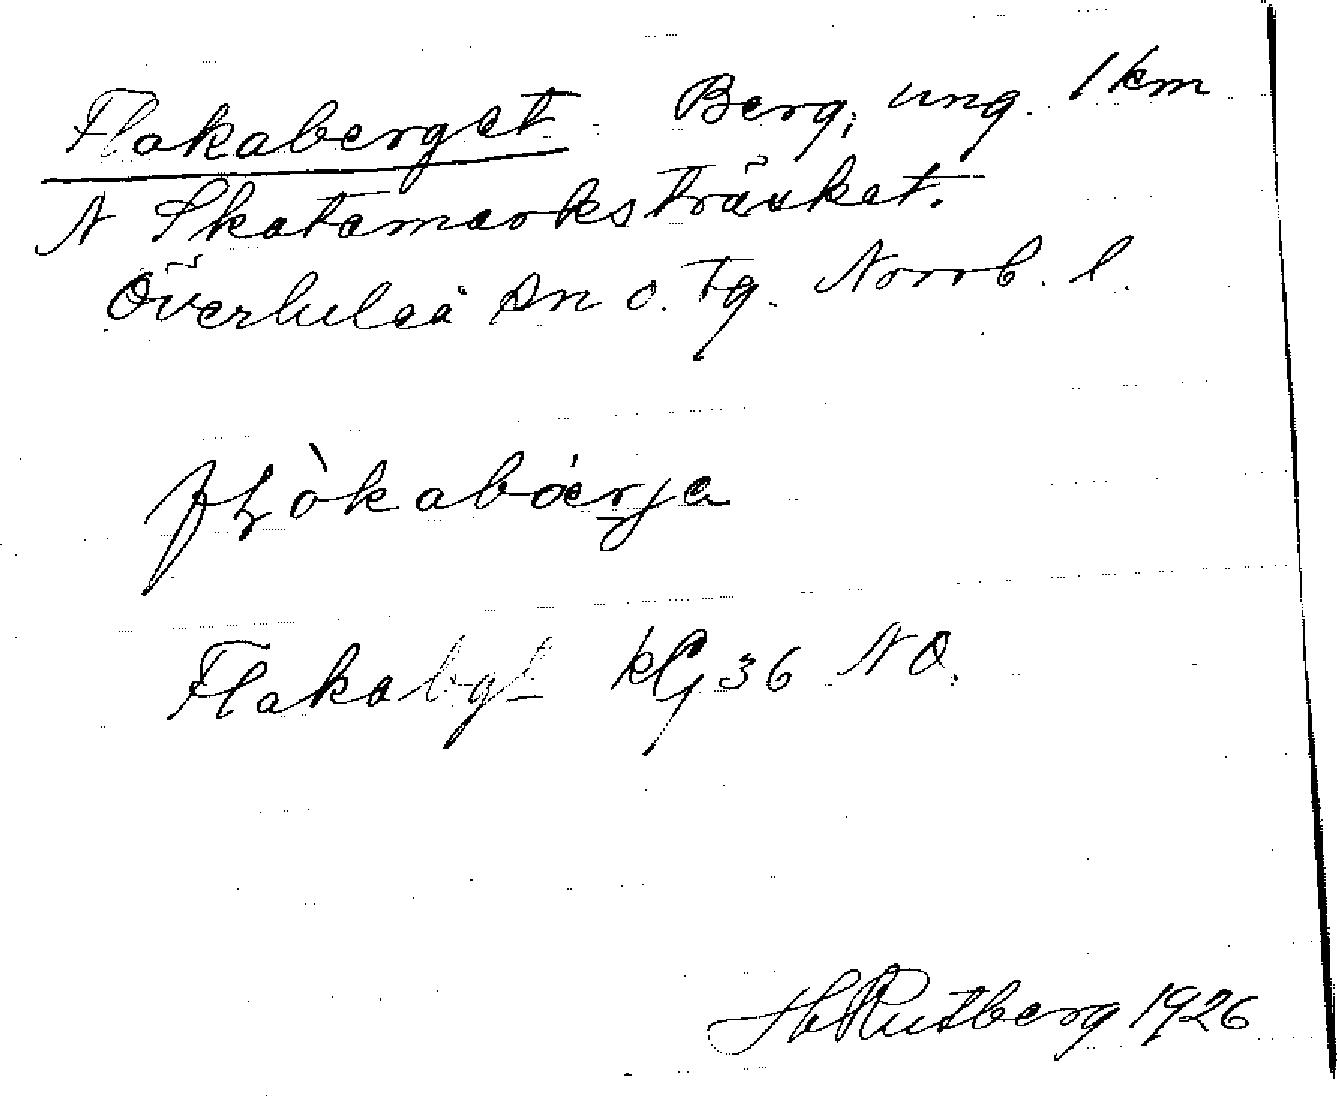 Flakaberget. Berg, ung. 1 km
N Skatamarksträsket.
Överluleå sn o. tg. Norrb. l.
fḷòkabáerja
Flakabgt kG 36 NO.
H Rutberg 1926